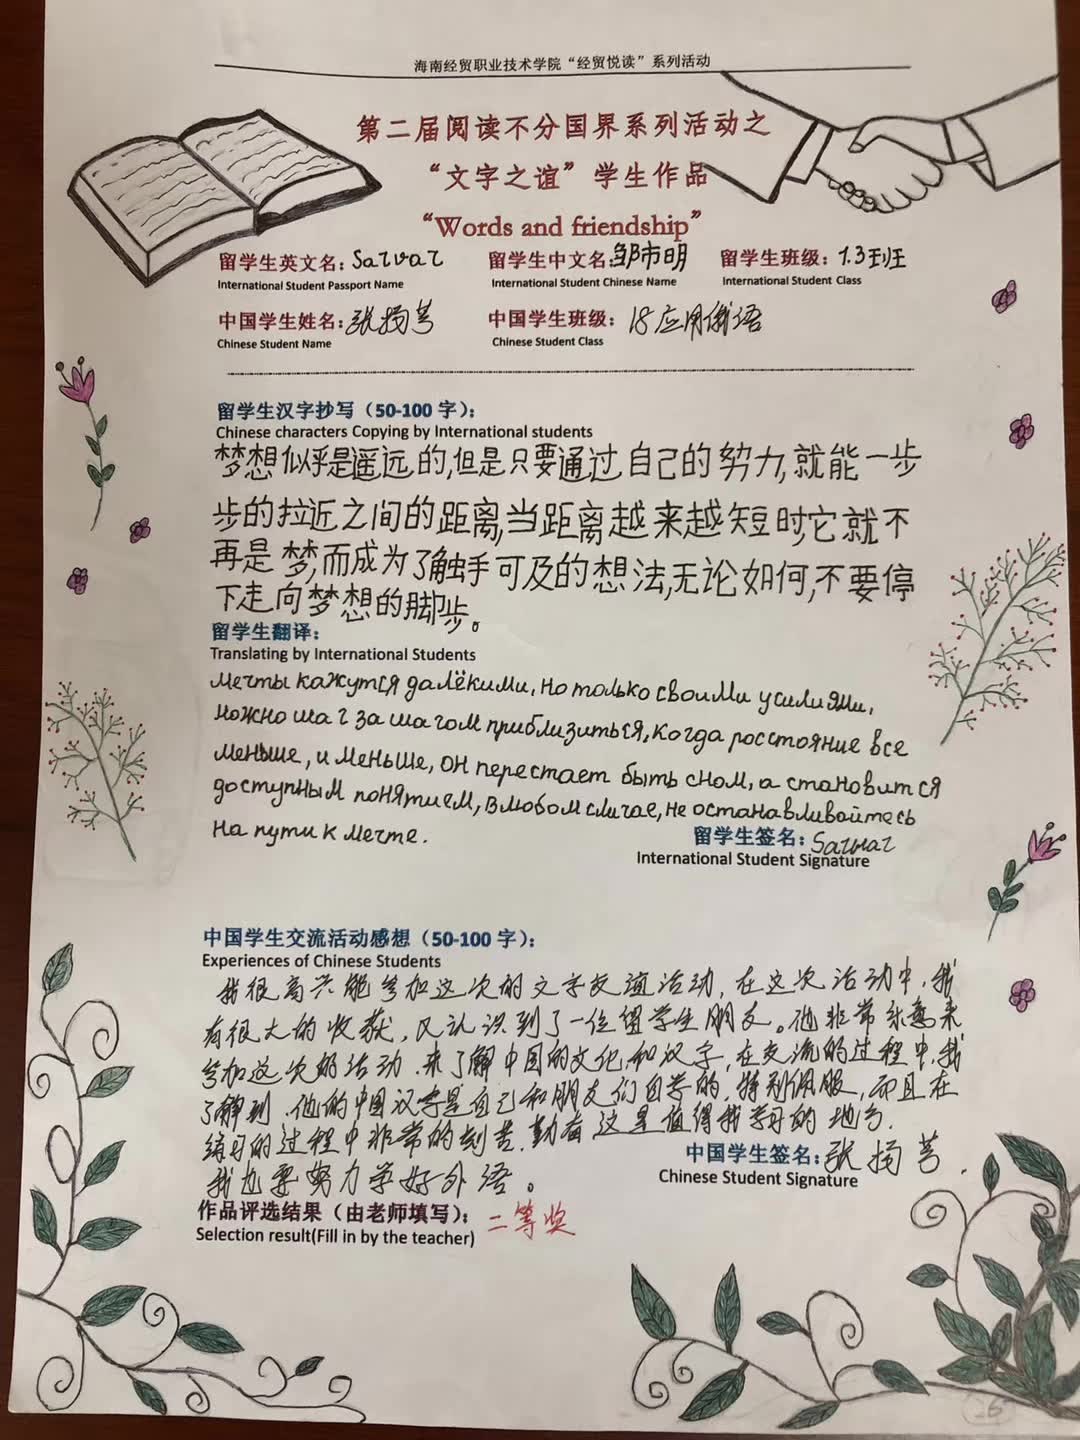 海南经贸职业技术学院“经贸悦读”系列活动
第二届阅读不分国界系列活动之
“文字之谊”学生作品
“Words and friendship”
留学生英文名：Sarvar 留学生中文名：邹市明 留学生班级：1.3班
International Student Passport Name International Student Chinese Name International Student Class
中国学生姓名：张扬 中国学生班级：18应用俄语
Chinese Student Name Chinese Student Class
留学生汉字抄写（50-100 字）：
Chinese characters Copying by International students
梦想似乎是遥远的,但是只要通过自己的努力,就能一步
步的拉近之间的距离,当距离越来越短时,它就不
再是梦,而成为了触手可及的想法,无论如何,不要停
下走向梦想的脚步。
留学生翻译：
Translating by International Students
Мечты кажутся далёкими, но только своими усилиями,
можно шаг за шагом приблизиться, когда росстояние все
меньше, и меньше, он перестает быть сном, а становится
доступным понятием, в любом случае, не останавливайтесь
на пути к мечте.
留学生签名：Sarvar
International Student Signature
中国学生交流活动感想（50-100 字）：
Experiences of Chinese Students
我很高兴能参加这次的文字友谊活动，在这次活动中，我
有很大的收获，又认识到了一位留学生朋友。他非常乐意来
参加这次的活动，来了解中国的文化和汉字，在交流的过程中，我
了解到，他的中国汉字是自己和朋友们自学的，特别佩服，而且在
练习的过程中非常的刻苦，勤奋，这是值得我学习的地方，
我也要努力学好外语。
中国学生签名：张扬
Chinese Student Signature
作品评选结果（由老师填写）：二等奖
Selection result(Fill in by the teacher)
26